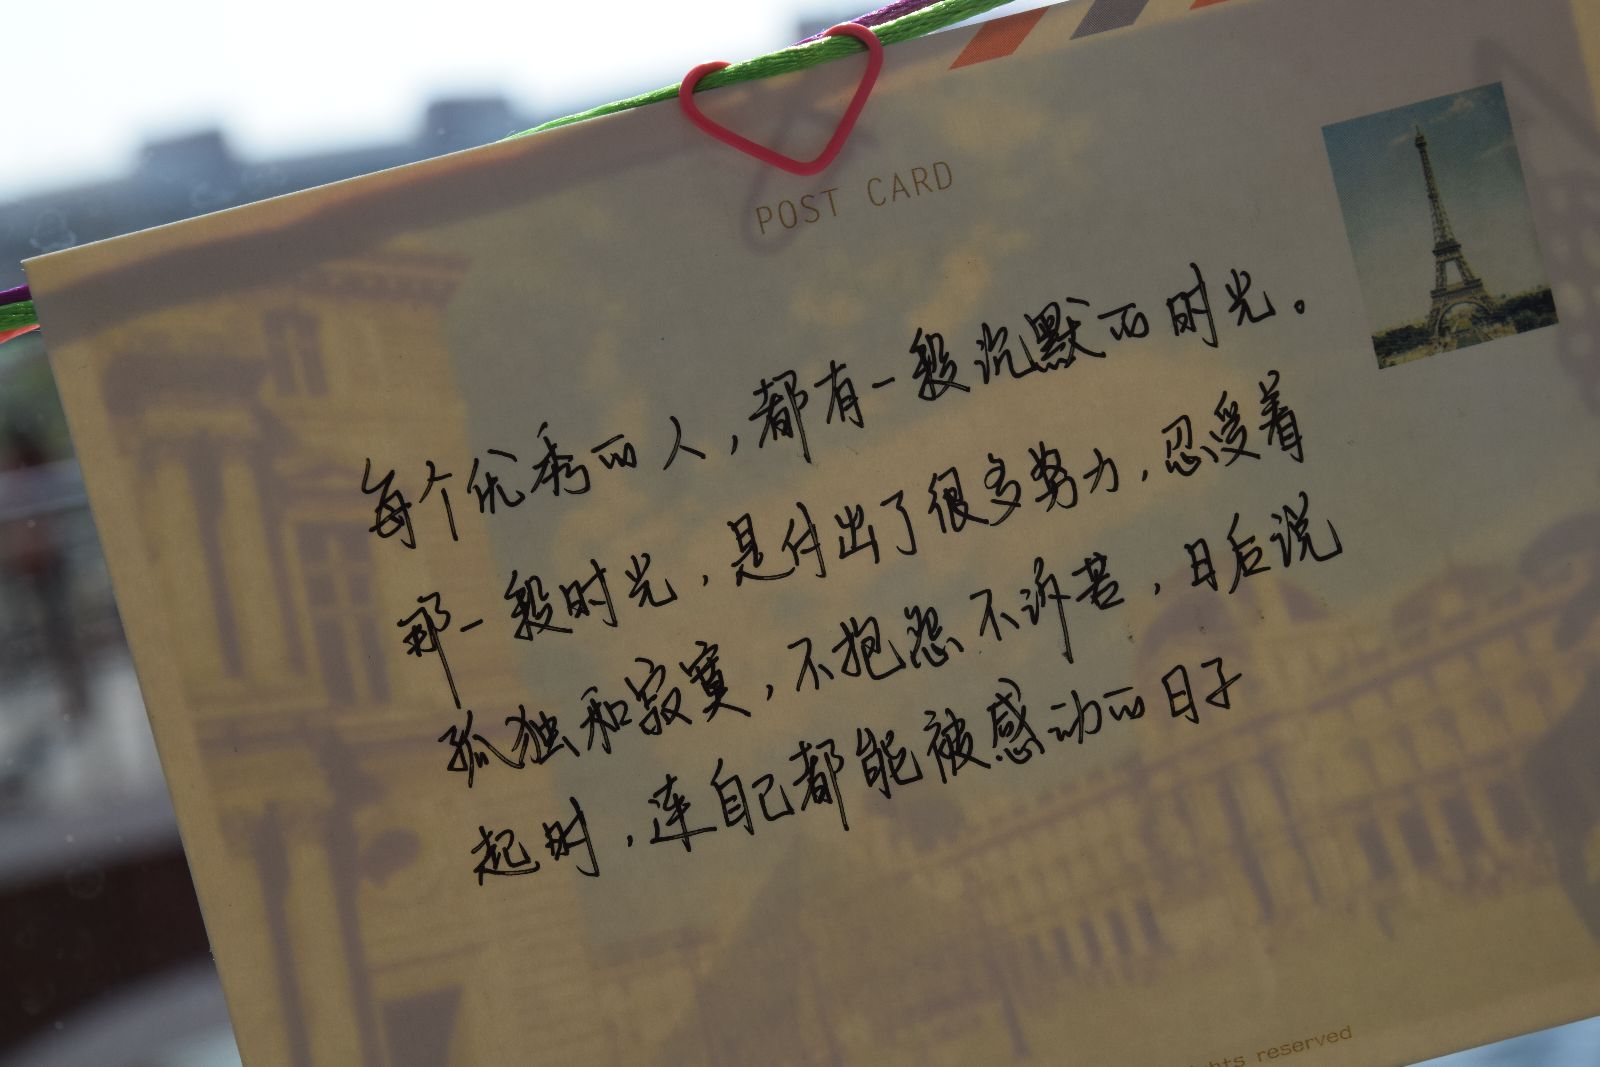 POST CARD
每个优秀的人，都有一段沉默的时光。
那一段时光，是付出了很多努力，忍受着
孤独和寂寞，不抱怨不诉苦，日后说
起时，连自己都能被感动的日子
reserved